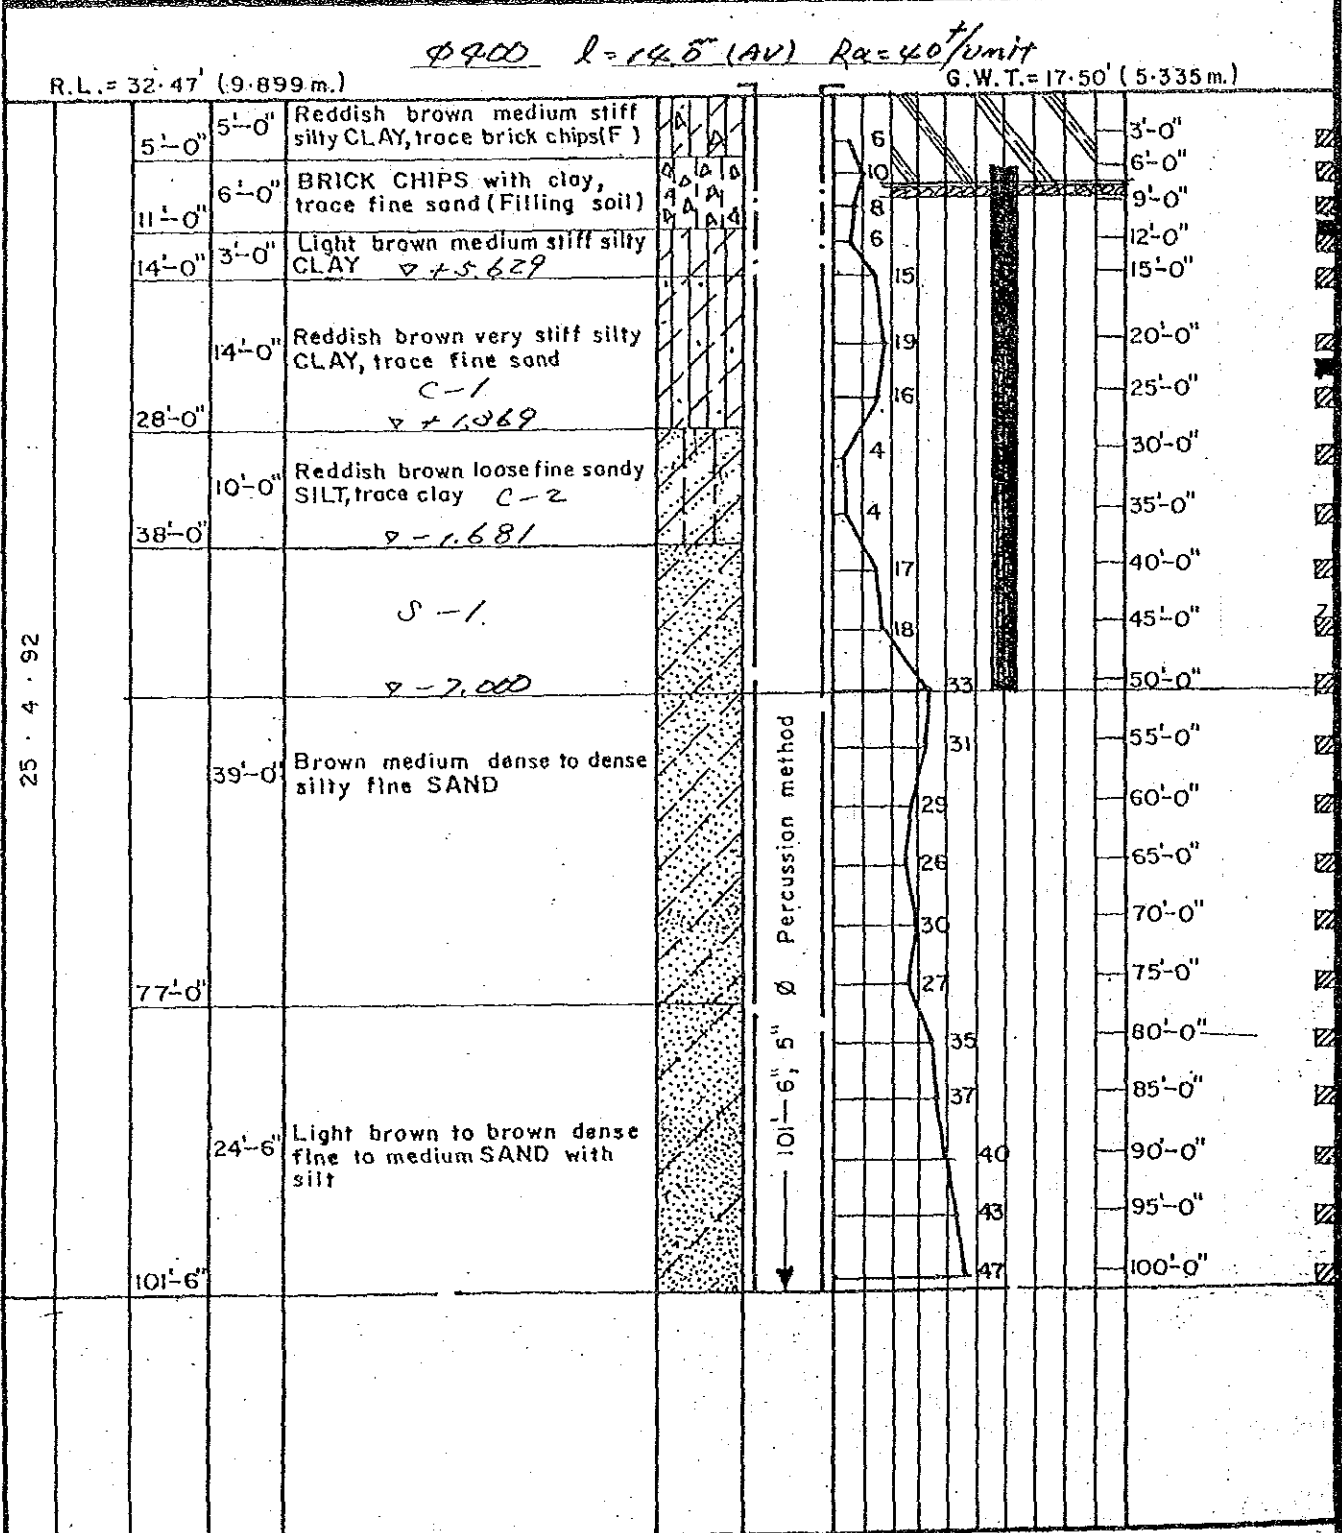 φ400 l=14.5m (AV) Ra=40t/unit
R.L.= 32·47' (9·899 m.)
G.W.T.= 17·50' (5·335 m.)
5'-0" 5'-0" Reddish brown medium stiff
silty CLAY, trace brick chips(F)
11'-0" 6'-0" BRICK CHIPS with clay,
trace fine sand (Filling soil)
14'-0" 3'-0" Light brown medium stiff silty
CLAY ▽ +5.629
14'-0" Reddish brown very stiff silty
CLAY, trace fine sand
C-1
28'-0" ▽ +1.369
10'-0" Reddish brown loose fine sandy
SILT, trace clay C-2
38'-0" ▽ -1.681
S-1.
▽ -7.000
39'-0" Brown medium dense to dense
silty fine SAND
77'-0"
24'-6" Light brown to brown dense
fine to medium SAND with
silt
101'-6"
25·4·92
101'-6", 5" Ø Percussion method
6
10
8
6
15
19
16
4
4
17
18
33
31
29
26
30
27
35
37
40
43
47
3'-0"
6'-0"
9'-0"
12'-0"
15'-0"
20'-0"
25'-0"
30'-0"
35'-0"
40'-0"
45'-0"
50'-0"
55'-0"
60'-0"
65'-0"
70'-0"
75'-0"
80'-0"
85'-0"
90'-0"
95'-0"
100'-0"